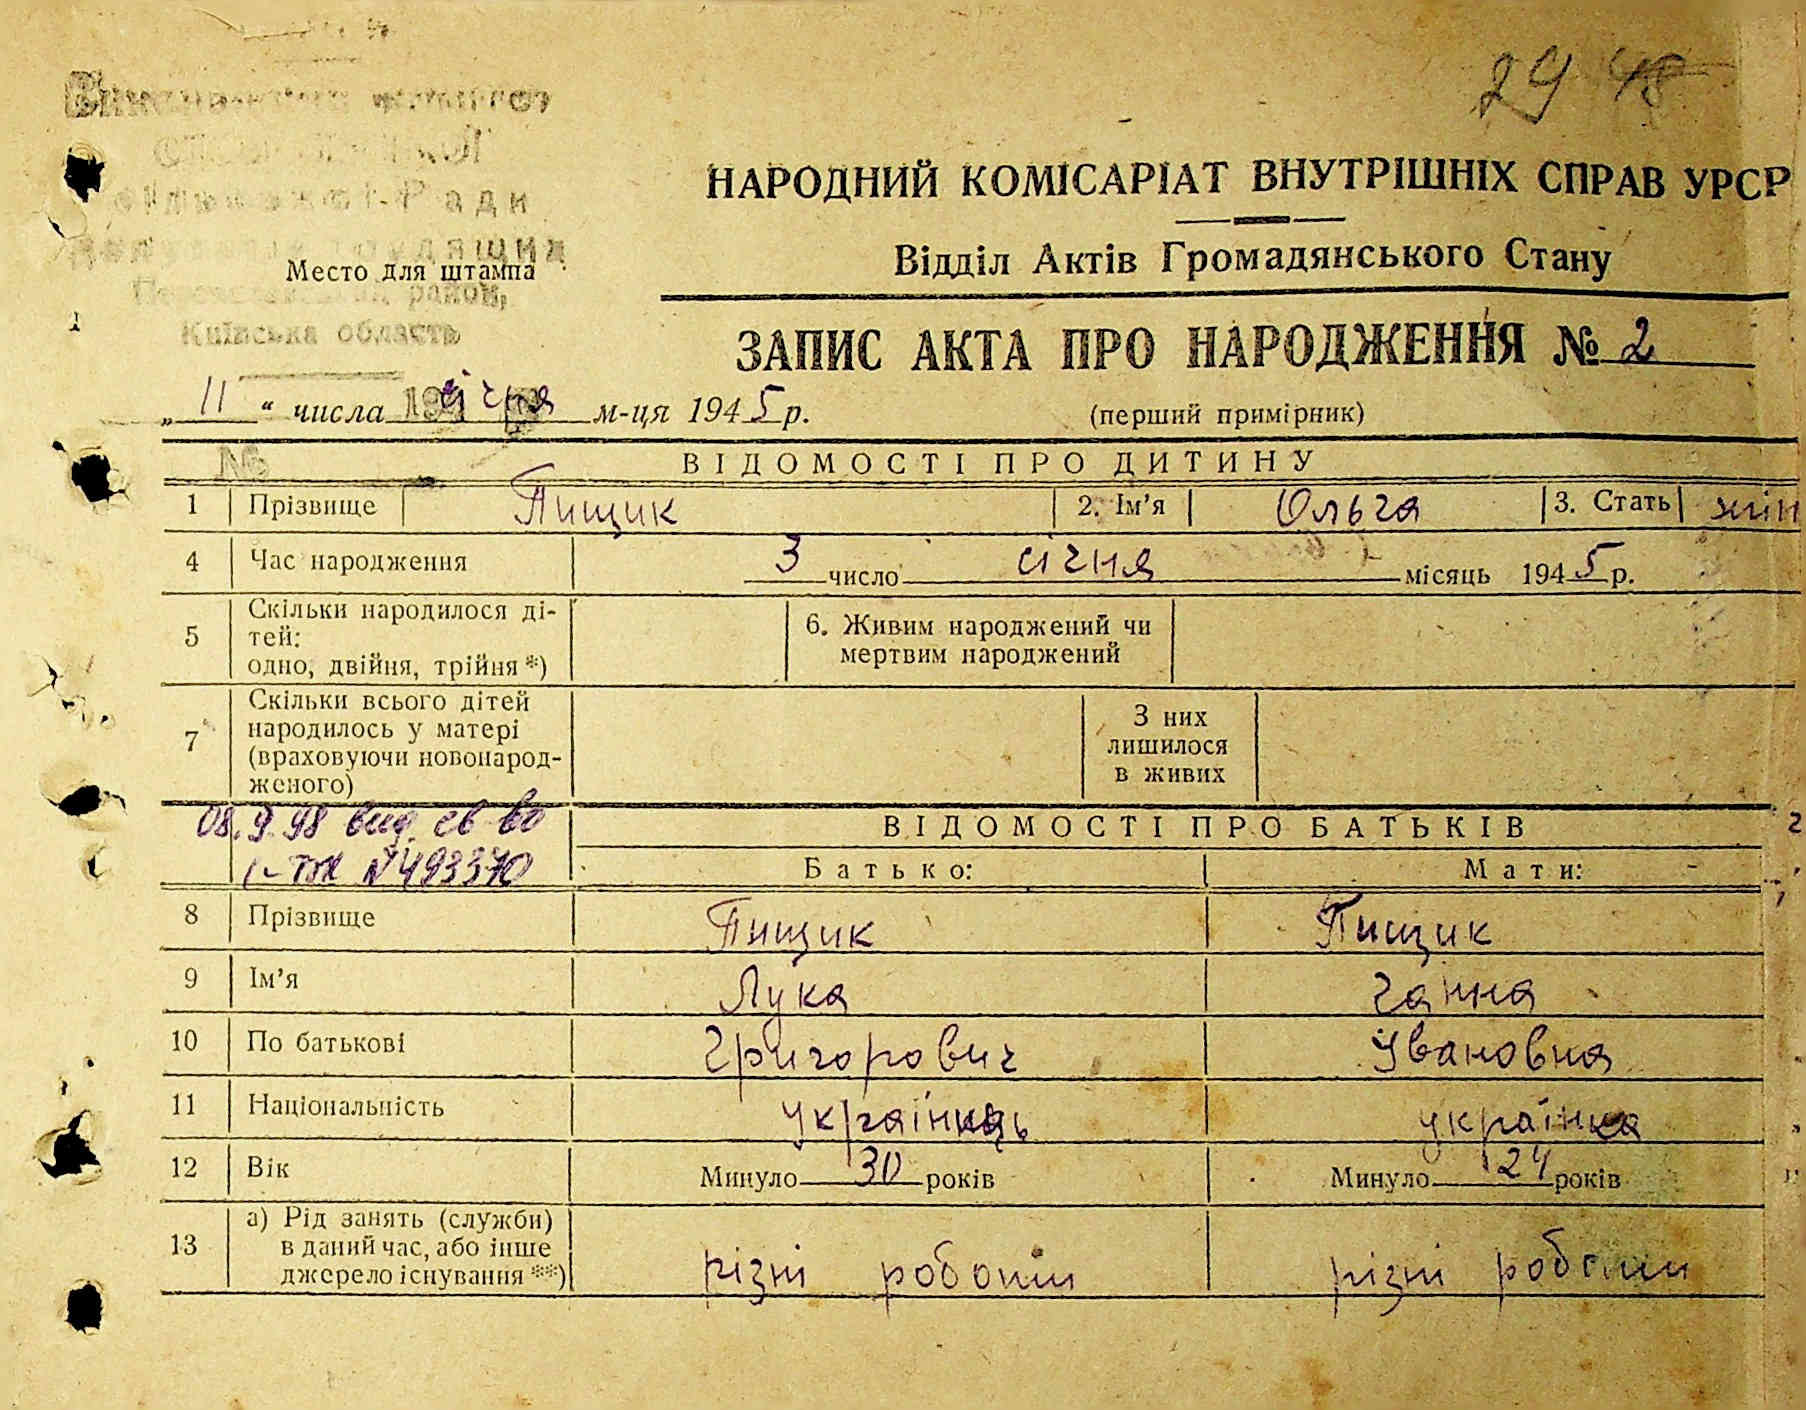 29 48
НАРОДНИЙ КОМІСАРІАТ ВНУТРІШНІХ СПРАВ УРСР
Відділ Актів Громадянського Стану
Ради
трудящих
Место для штампа
район,
Київська область
ЗАПИС АКТА ПРО НАРОДЖЕННЯ № 2
(перший примірник)
„ 11 “ числа січня м-ця 1945 р.
№
ВІДОМОСТІ ПРО ДИТИНУ
1 Прізвище Пищик 2. Ім'я Ольга 3. Стать жін
4 Час народження 3 число січня місяць 1945 р.
5 Скільки народилося ді-
тей:
одно, двійня, трійня *)
6. Живим народжений чи
мертвим народжений
7 Скільки всього дітей
народилось у матері
(враховуючи новонарод-
женого)
З них
лишилося
в живих
08.9.98 вид. св во
І-ТЖ №493370
ВІДОМОСТІ ПРО БАТЬКІВ
Батько: Мати:
8 Прізвище Пищик Пищик
9 Ім'я Лука Ганна
10 По батькові Григорович Ивановна
11 Національність українець українка
12 Вік Минуло 30 років Минуло 24 років
13 а) Рід занять (служби)
в даний час, або інше
джерело існування **)
різні роботи різні роботи